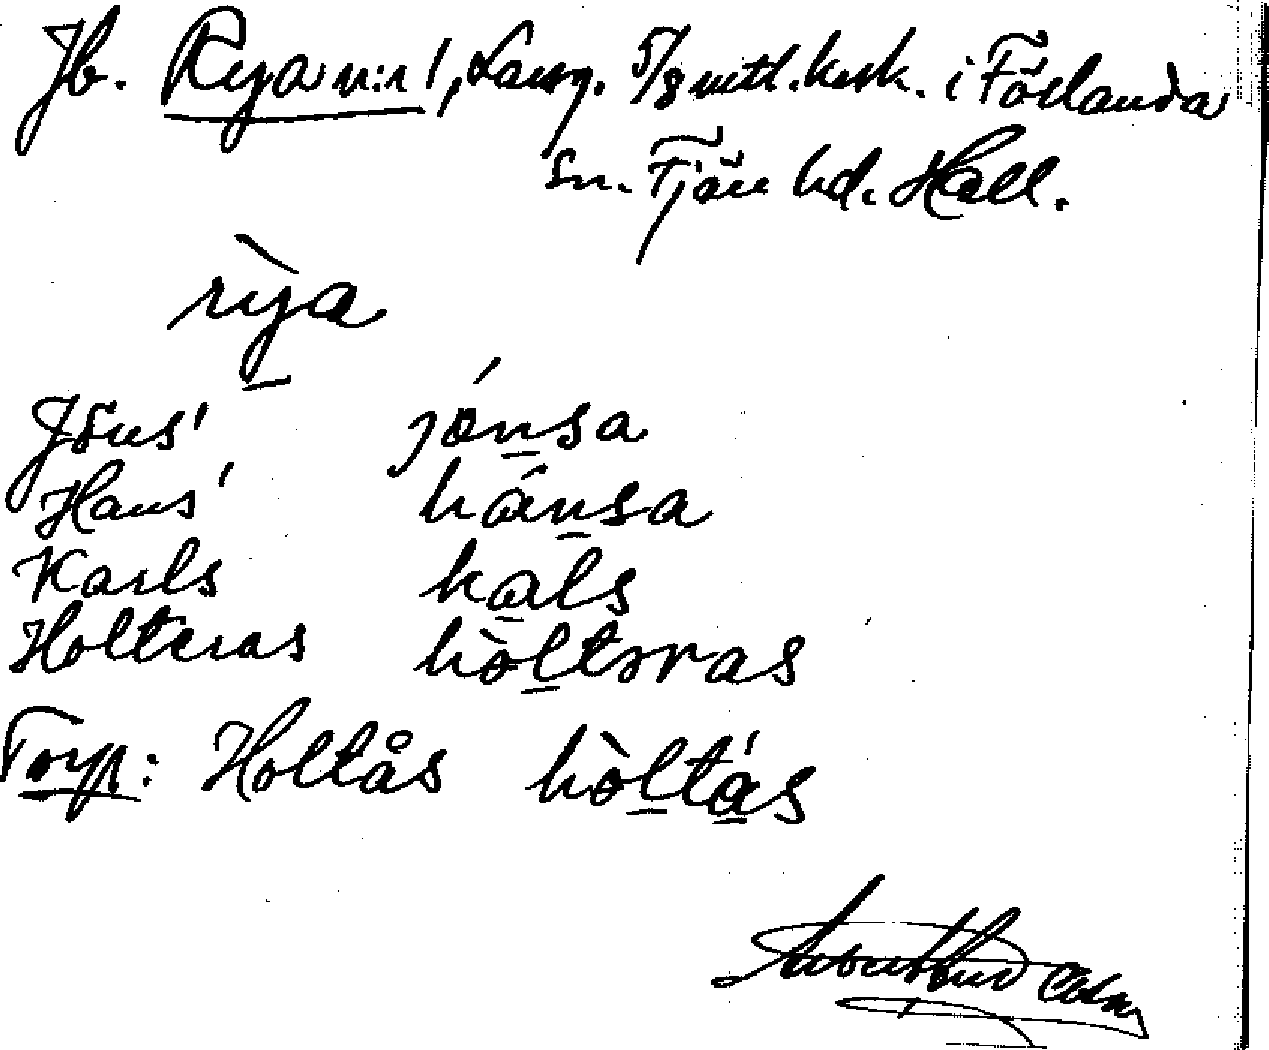 Jb. Rya n:r 1, 5/8 mtl. kerk. i Förlanda
sn. Fjäre hd. Hall.
rỳa
Jöns' jónsa
Hans' hánsa
Karls kals
Holteras hòltoras
Torp: Holtås hòltás